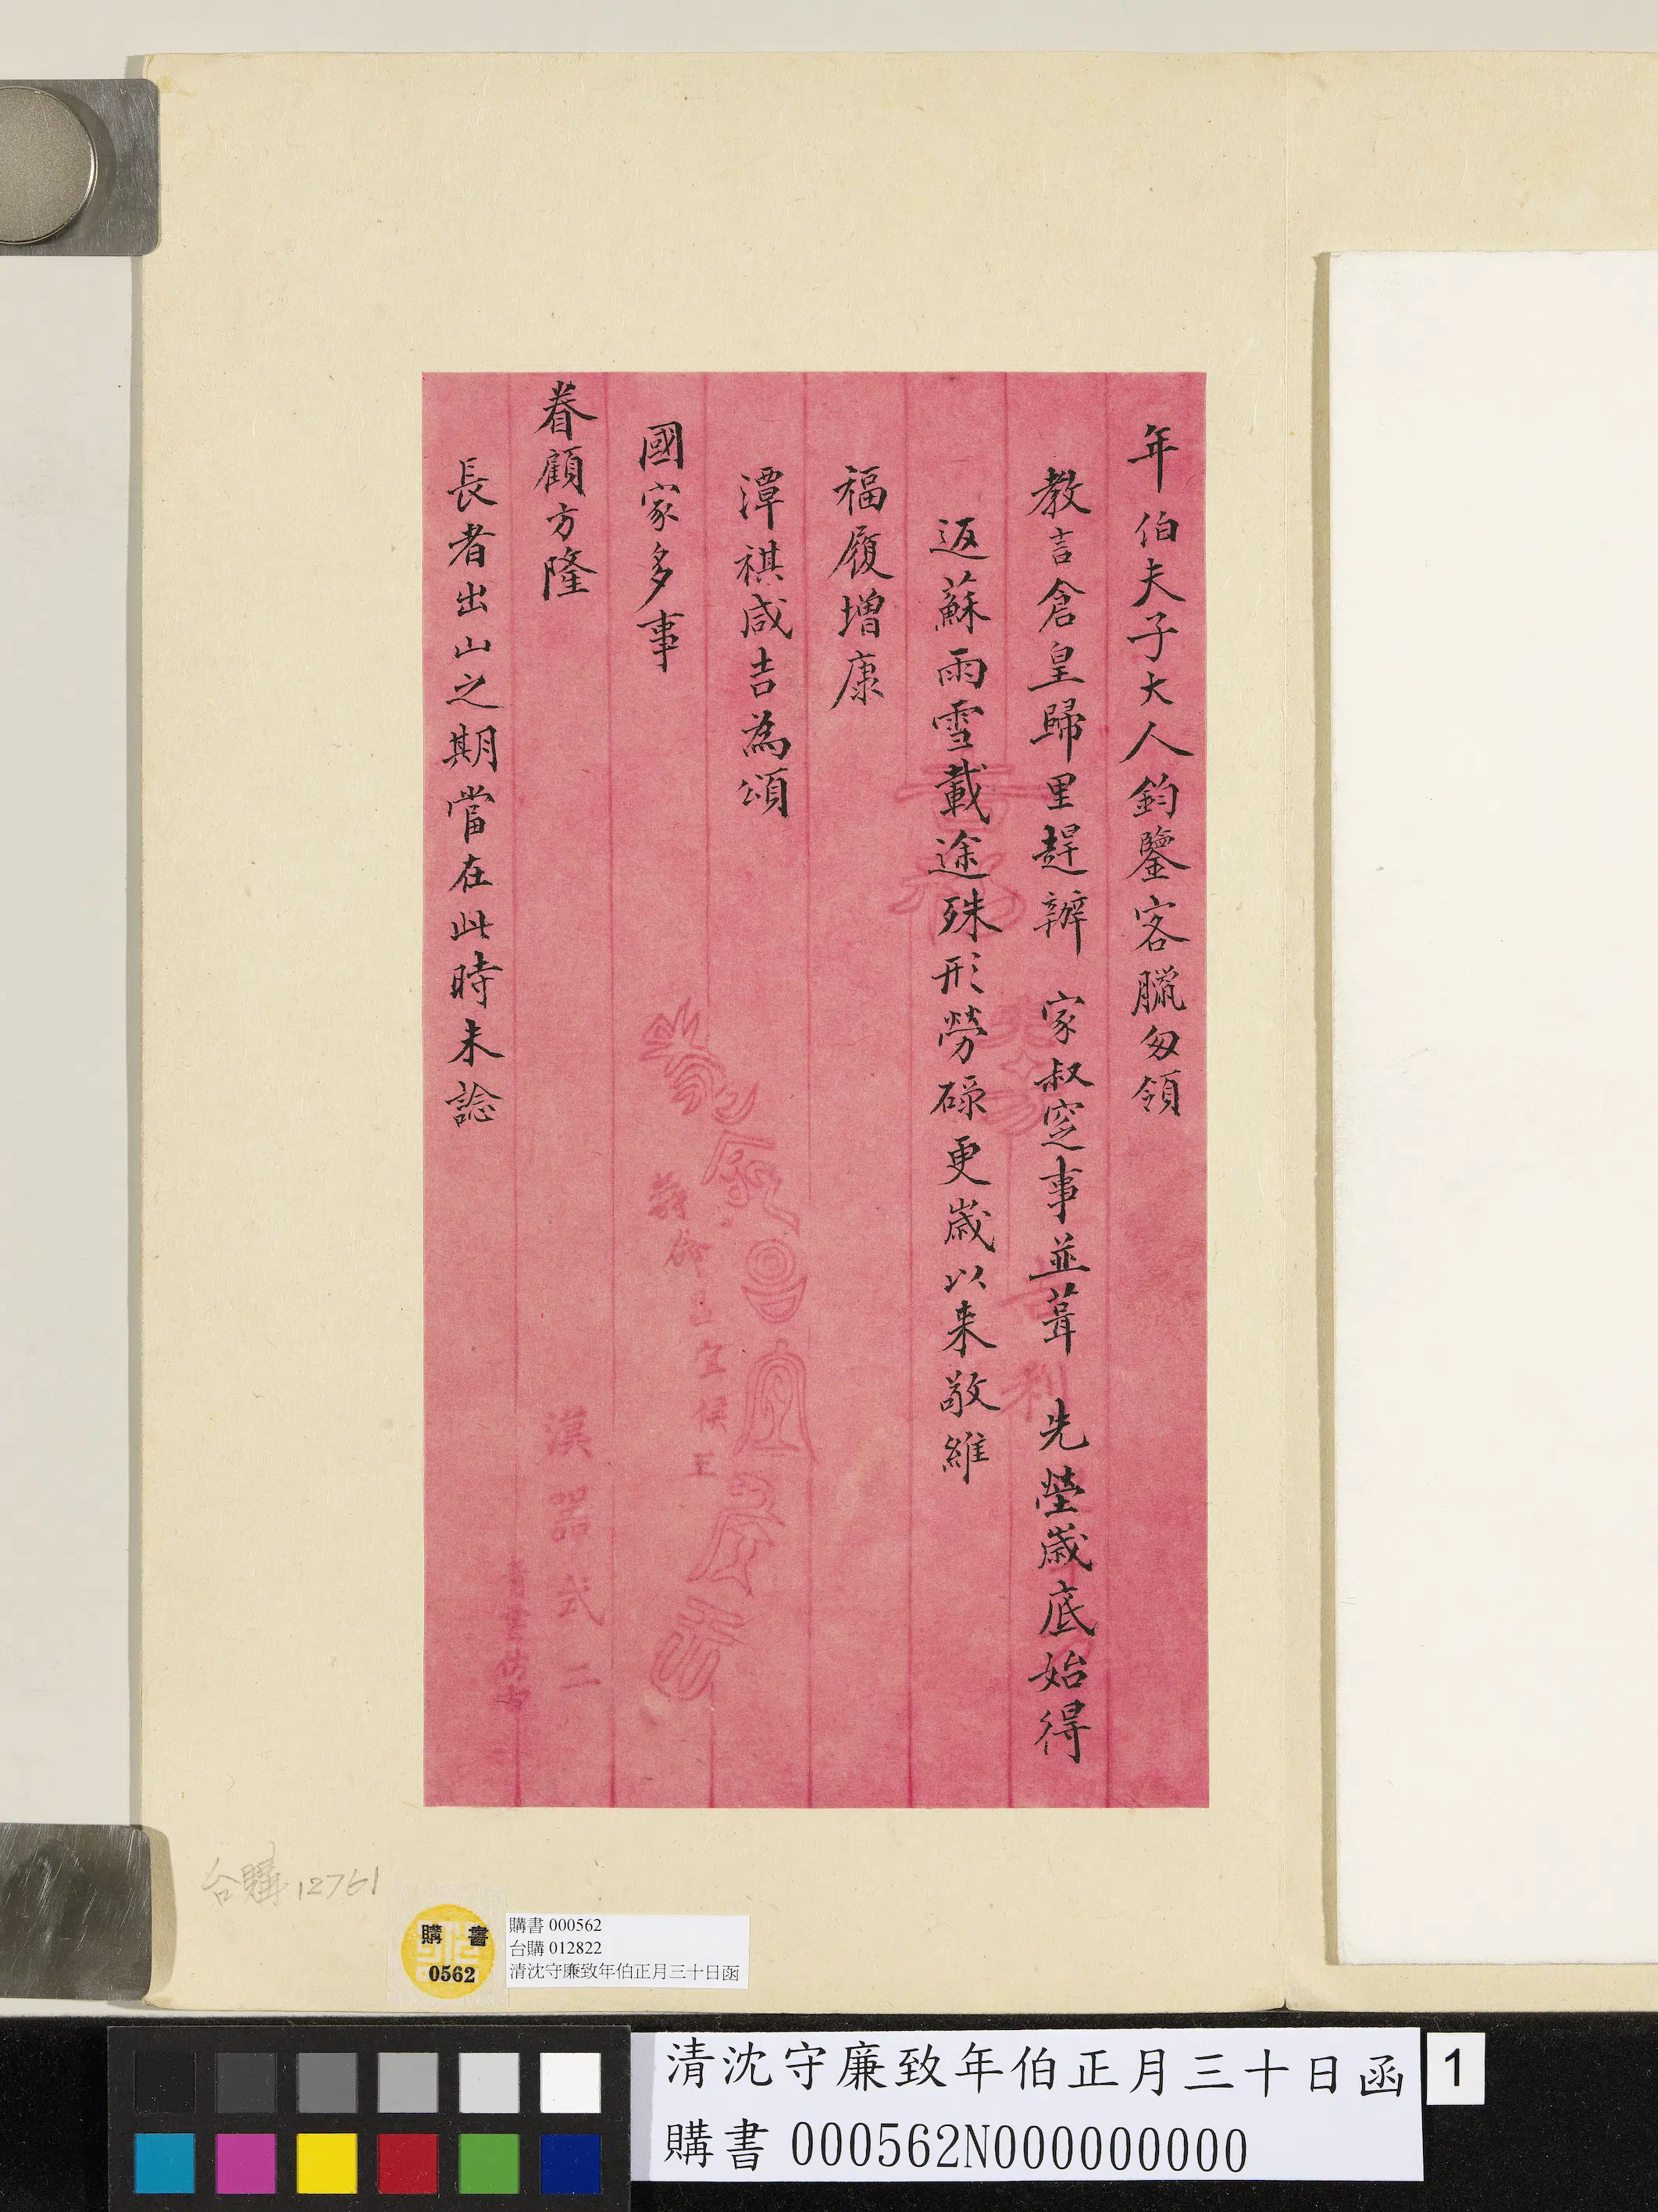 年伯夫子大人鈞鑒客臘匆領
教言倉皇歸里趕辦 家叔窆事並葺 先塋歲底始得
返蘇雨雪載途殊形勞碌更歲以来敬維
福履增康
潭祺咸吉為頌
國家多事
眷顧方隆
長者出山之期當在此時未諗
宜侯王
漢器式二
台購12761
購書
0562
購書 000562
台購 012822
清沈守廉致年伯正月三十日函
清沈守廉致年伯正月三十日函
購書 000562N000000000
1